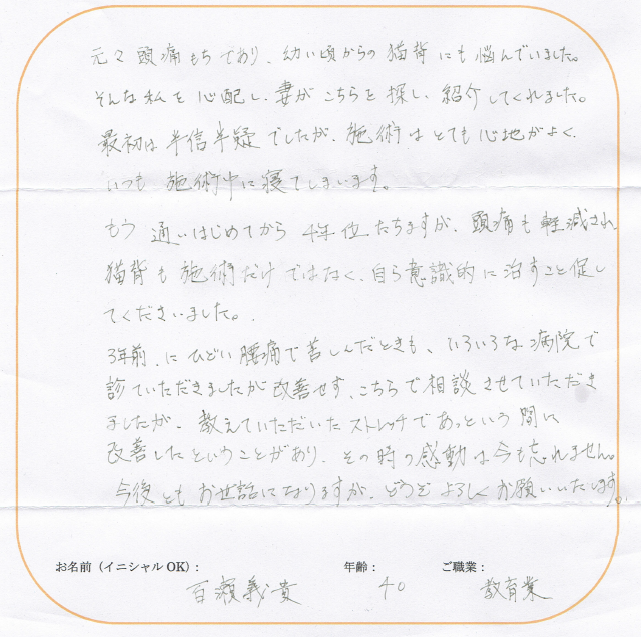 元々頭痛もちであり、幼い頃からの猫背にも悩んでいました。
そんな私を心配し、妻がこちらを探し、紹介してくれました。
最初は半信半疑でしたが、施術はとても心地がよく、
いつも施術中に寝てしまいます。
もう通いはじめてから4年位たちますが、頭痛も軽減され、
猫背も施術だけではなく、自ら意識的に治すこと促し
てくださいました。
3年前にひどい腰痛で苦しんだときも、いろいろな病院で
診ていただきましたが改善せず、こちらで相談させていただき
ましたが、教えていただいたストレッチであっという間に
改善したということがあり、その時の感動は今も忘れません。
今後ともお世話になりますが、どうぞよろしくお願いいたします。
お名前（イニシャルOK）： 年齢： ご職業：
百瀬義貴 40 教育業